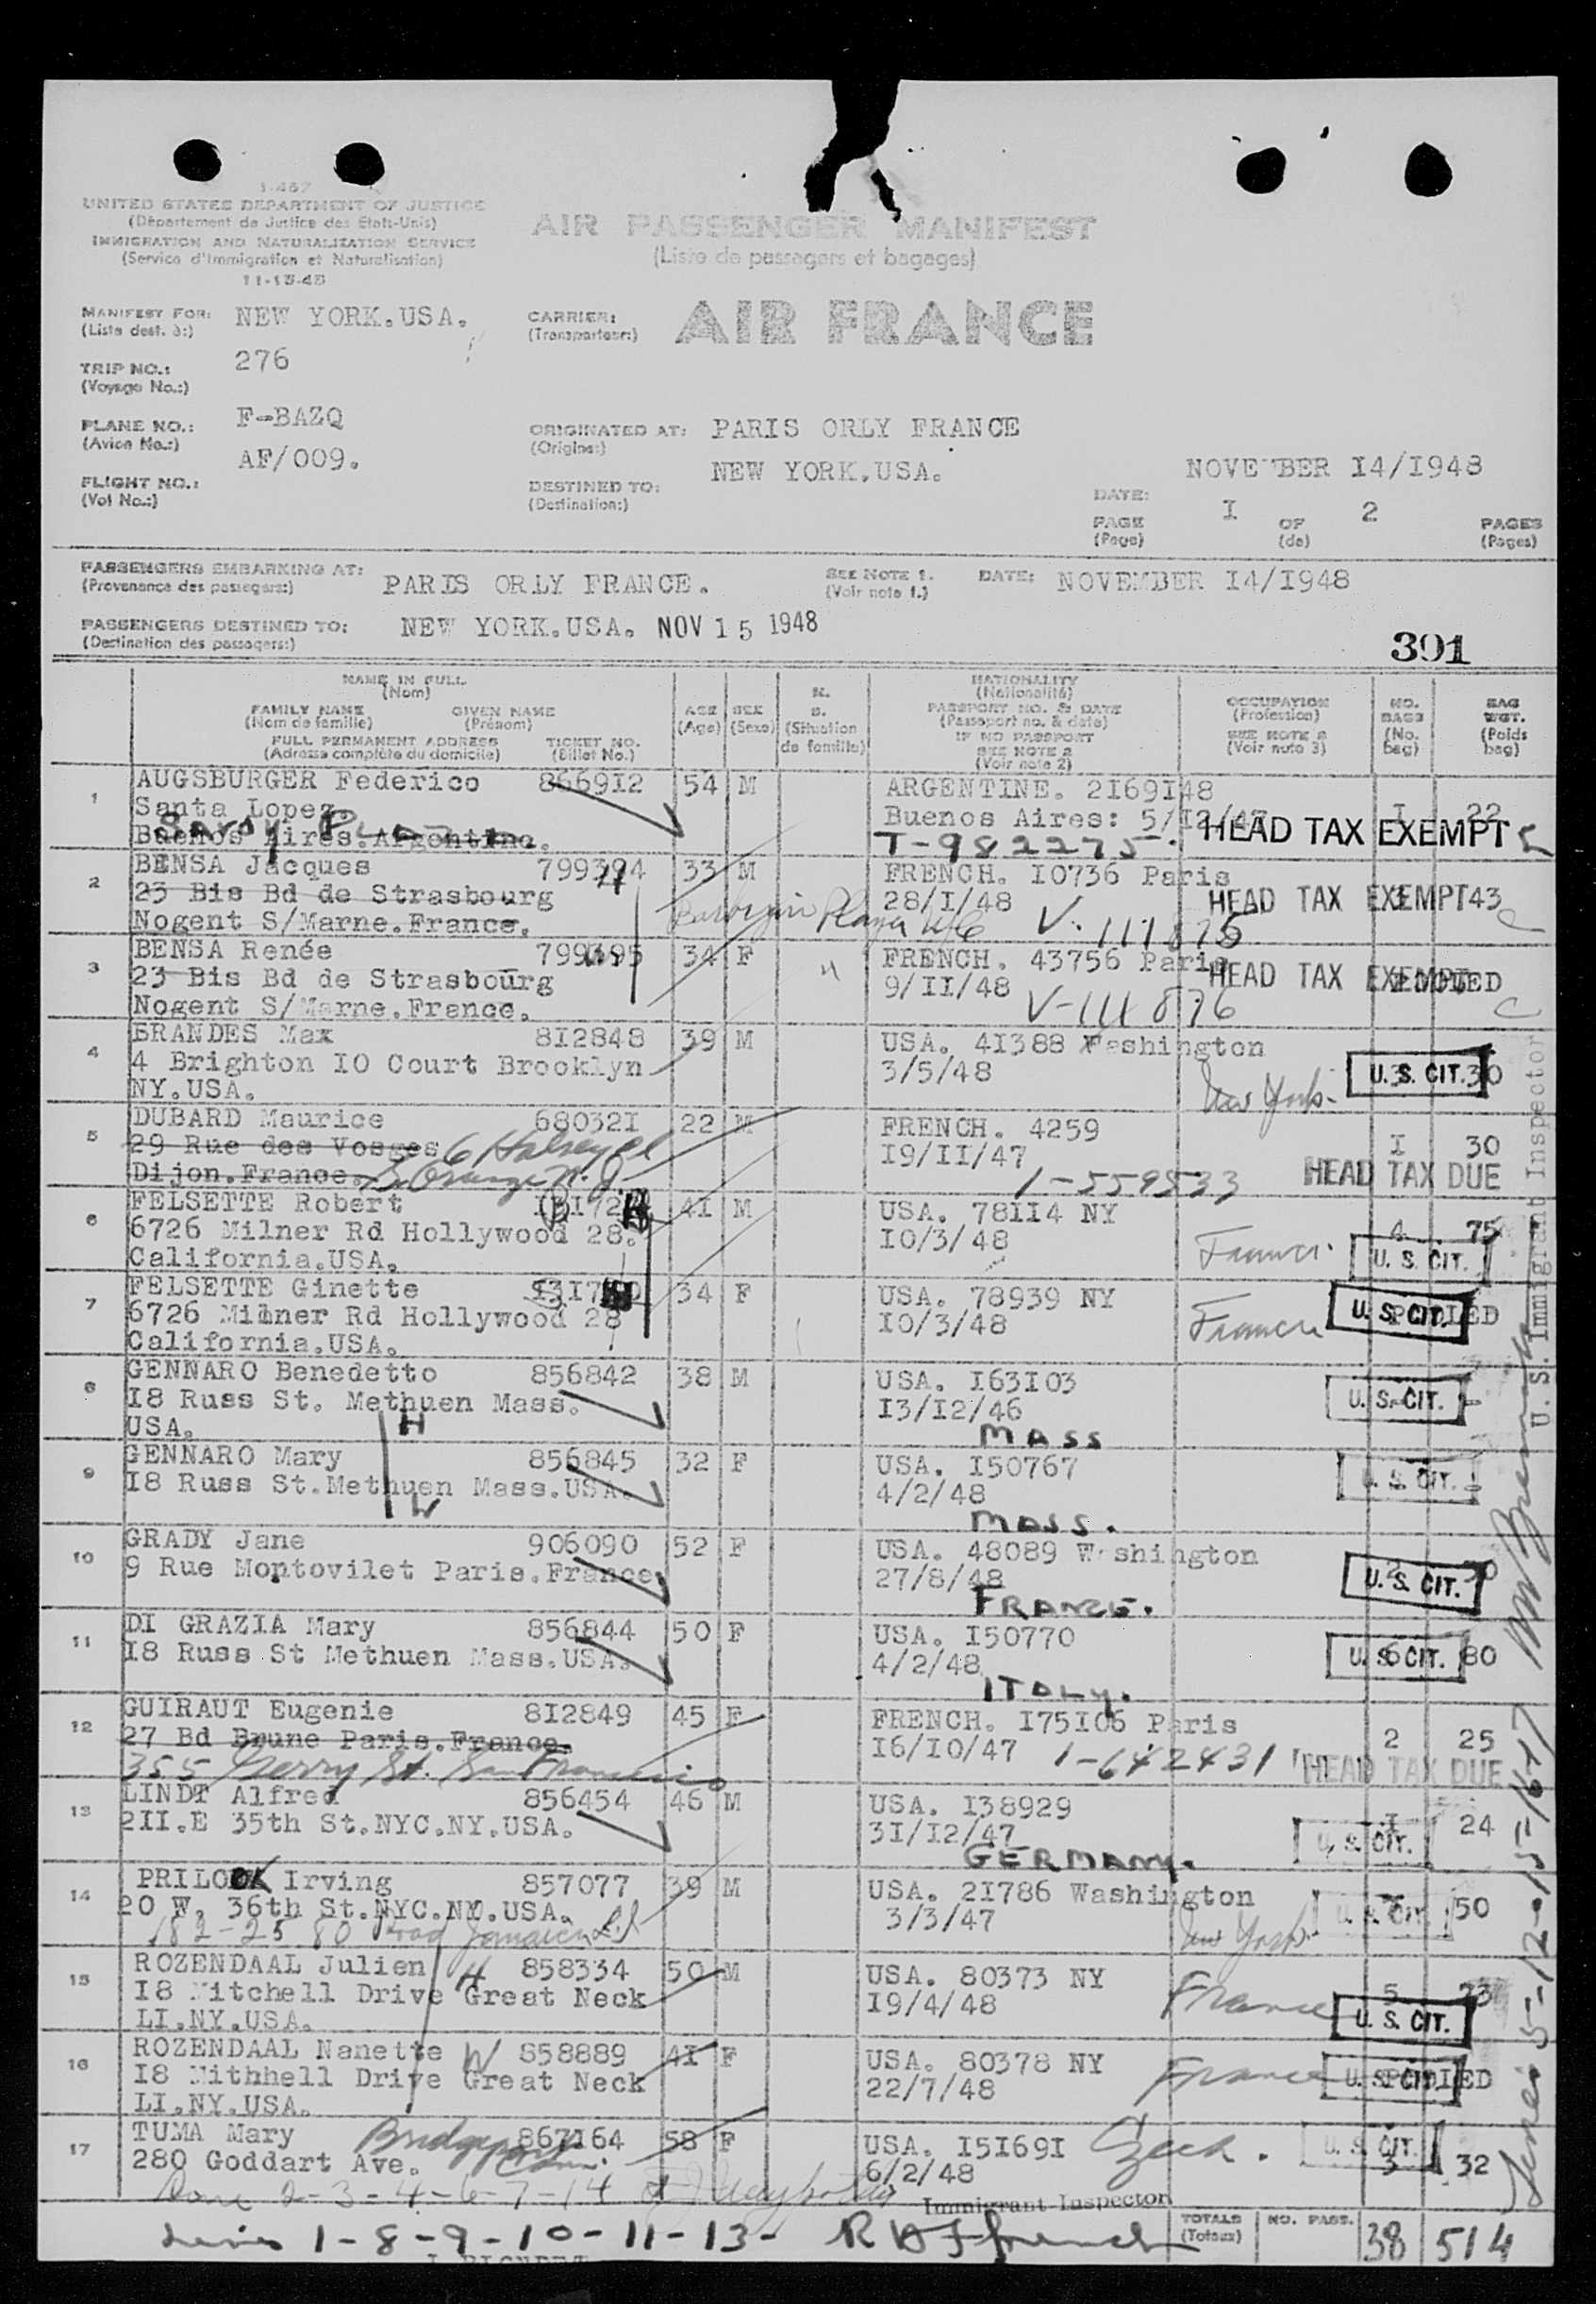 I-467
UNITED STATES DEPARTMENT OF JUSTICE
(Département de Justice des Etats-Unis)
IMMIGRATION AND NATURALIZATION SERVICE
(Service d'Immigration et Naturalisation)
11-15-45
AIR PASSENGER MANIFEST
(Liste de passagers et bagages)
MANIFEST FOR: NEW YORK.USA.
(Liste dest. à:)
CARRIER: AIR FRANCE
(Transporteur:)
TRIP NO.: 276
(Voyage No.:)
PLANE NO.: F-BAZQ
(Avion No.:)
AF/009.
FLIGHT NO.:
(Vol No.:)
ORIGINATED AT: PARIS ORLY FRANCE
(Origine:)
DESTINED TO: NEW YORK.USA.
(Destination:)
DATE: NOVE BER I4/I948
PAGE I OF 2 PAGES
(Page) (de) (Pages)
PASSENGERS EMBARKING AT: PARIS ORLY FRANCE.
(Provenance des passagers:)
SEE NOTE 1. DATE: NOVEMBER I4/I948
(Voir note 1.)
PASSENGERS DESTINED TO: NEW YORK.USA. NOV 15 1948
(Destination des passagers:)
391
NAME IN FULL
(Nom)
FAMILY NAME GIVEN NAME
(Nom de famille) (Prénom)
FULL PERMANENT ADDRESS TICKET NO.
(Adresse complète du domicile) (Billet No.)
AGE
(Age)
SEX
(Sexe)
M.
S.
(Situation
de famille)
NATIONALITY
(Nationalité)
PASSPORT NO. & DATE
(Passeport no. & date)
IF NO PASSPORT
SEE NOTE 2
(Voir note 2)
OCCUPATION
(Profession)
SEE NOTE 3
(Voir note 3)
NO.
BAGS
(No.
bag)
BAG
WGT.
(Poids
bag)
1 AUGSBURGER Federico 866912 54 M ARGENTINE. 2I69I48 I 22
Santa Lopez. Buenos Aires: 5/I2/47
Savoy Plaza
Buenos Aires.Argentine. T-982275. HEAD TAX EXEMPT
2 BENSA Jacques H 799394 33 M FRENCH. I0736 Paris
23 Bis Bd de Strasbourg 28/I/48 HEAD TAX EXEMPT 43
Nogent S/Marne.France. V. 111875
3 BENSA Renée W 799395 34 F FRENCH. 43756 Paris
23 Bis Bd de Strasbourg 9/II/48 HEAD TAX EXEMPT
Nogent S/Marne.France. V-111876
4 BRANDES Max 8I2848 39 M USA. 4I388 Washington
4 Brighton IO Court Brooklyn 3/5/48 New York. U.S. CIT. 3 30
NY.USA.
5 DUBARD Maurice 68032I 22 M FRENCH. 4259
29 Rue des Vosges 6 Halsey Pl I9/II/47 I 30
Dijon.France. E. Orange N.J. 1-559533 HEAD TAX DUE
6 FELSETTE Robert 4I M USA. 78II4 NY
6726 Milner Rd Hollywood 28. I0/3/48 France. 4 75
California.USA. U.S. CIT.
7 FELSETTE Ginette 34 F USA. 78939 NY
6726 Milner Rd Hollywood 28 I0/3/48 France U.S. CIT. POOLED
California.USA.
8 GENNARO Benedetto 856842 38 M USA. I63I03
I8 Russ St. Methuen Mass. I3/I2/46 U.S. CIT.
USA. H MASS
9 GENNARO Mary 856845 32 F USA. I50767
I8 Russ St.Methuen Mass.USA. 4/2/48 U.S. CIT.
W MASS.
10 GRADY Jane 906090 52 F USA. 48089 W shington
9 Rue Montovilet Paris.France. 27/8/48 U.S. CIT.
FRANCE.
11 DI GRAZIA Mary 856844 50 F USA. I50770
I8 Russ St Methuen Mass.USA. 4/2/48 U.S. CIT. 6 80
ITALY.
12 GUIRAUT Eugenie 8I2849 45 F FRENCH. I75I06 Paris
27 Bd Brune Paris.France. I6/I0/47 1-642431 2 25
355 Gerry St. San Francisco HEAD TAX DUE
13 LINDT Alfred 856454 46 M USA. I38929
2II.E 35th St.NYC.NY.USA. 3I/I2/47 U.S. CIT. I 24
GERMANY.
14 PRILOOK Irving 857077 39 M USA. 2I786 Washington
20 W. 36th St.NYC.NY.USA. 3/3/47 U.S. CIT. 50
182-25 80 Road Jamaica L.I New York.
15 ROZENDAAL Julien H 858334 50 M USA. 80373 NY
I8 Mitchell Drive Great Neck I9/4/48 France 5 73
LI.NY.USA. U.S. CIT.
16 ROZENDAAL Nanette W 858889 4I F USA. 80378 NY
I8 Mithhell Drive Great Neck 22/7/48 France U.S. CIT. POOLED
LI.NY.USA.
17 TUMA Mary Bridgeport Conn. 867I64 58 F USA. I5I69I Czech. U.S. CIT.
280 Goddart Ave. 6/2/48 3 32
2-3-4-6-7-14 Immigrant Inspector
Lines 1-8-9-10-11-13- R D Ffrench
TOTALS NO. PASS. 38 514
(Totaux)
U.S. Immigrant Inspector
Lines 5-12-15-16-17